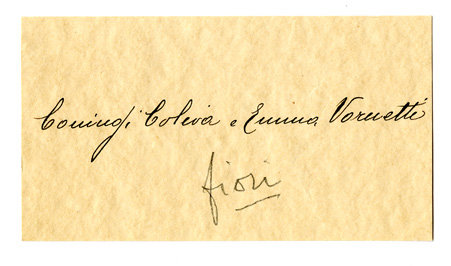 Coniugi Coleva e Emma Vornetti
fiori